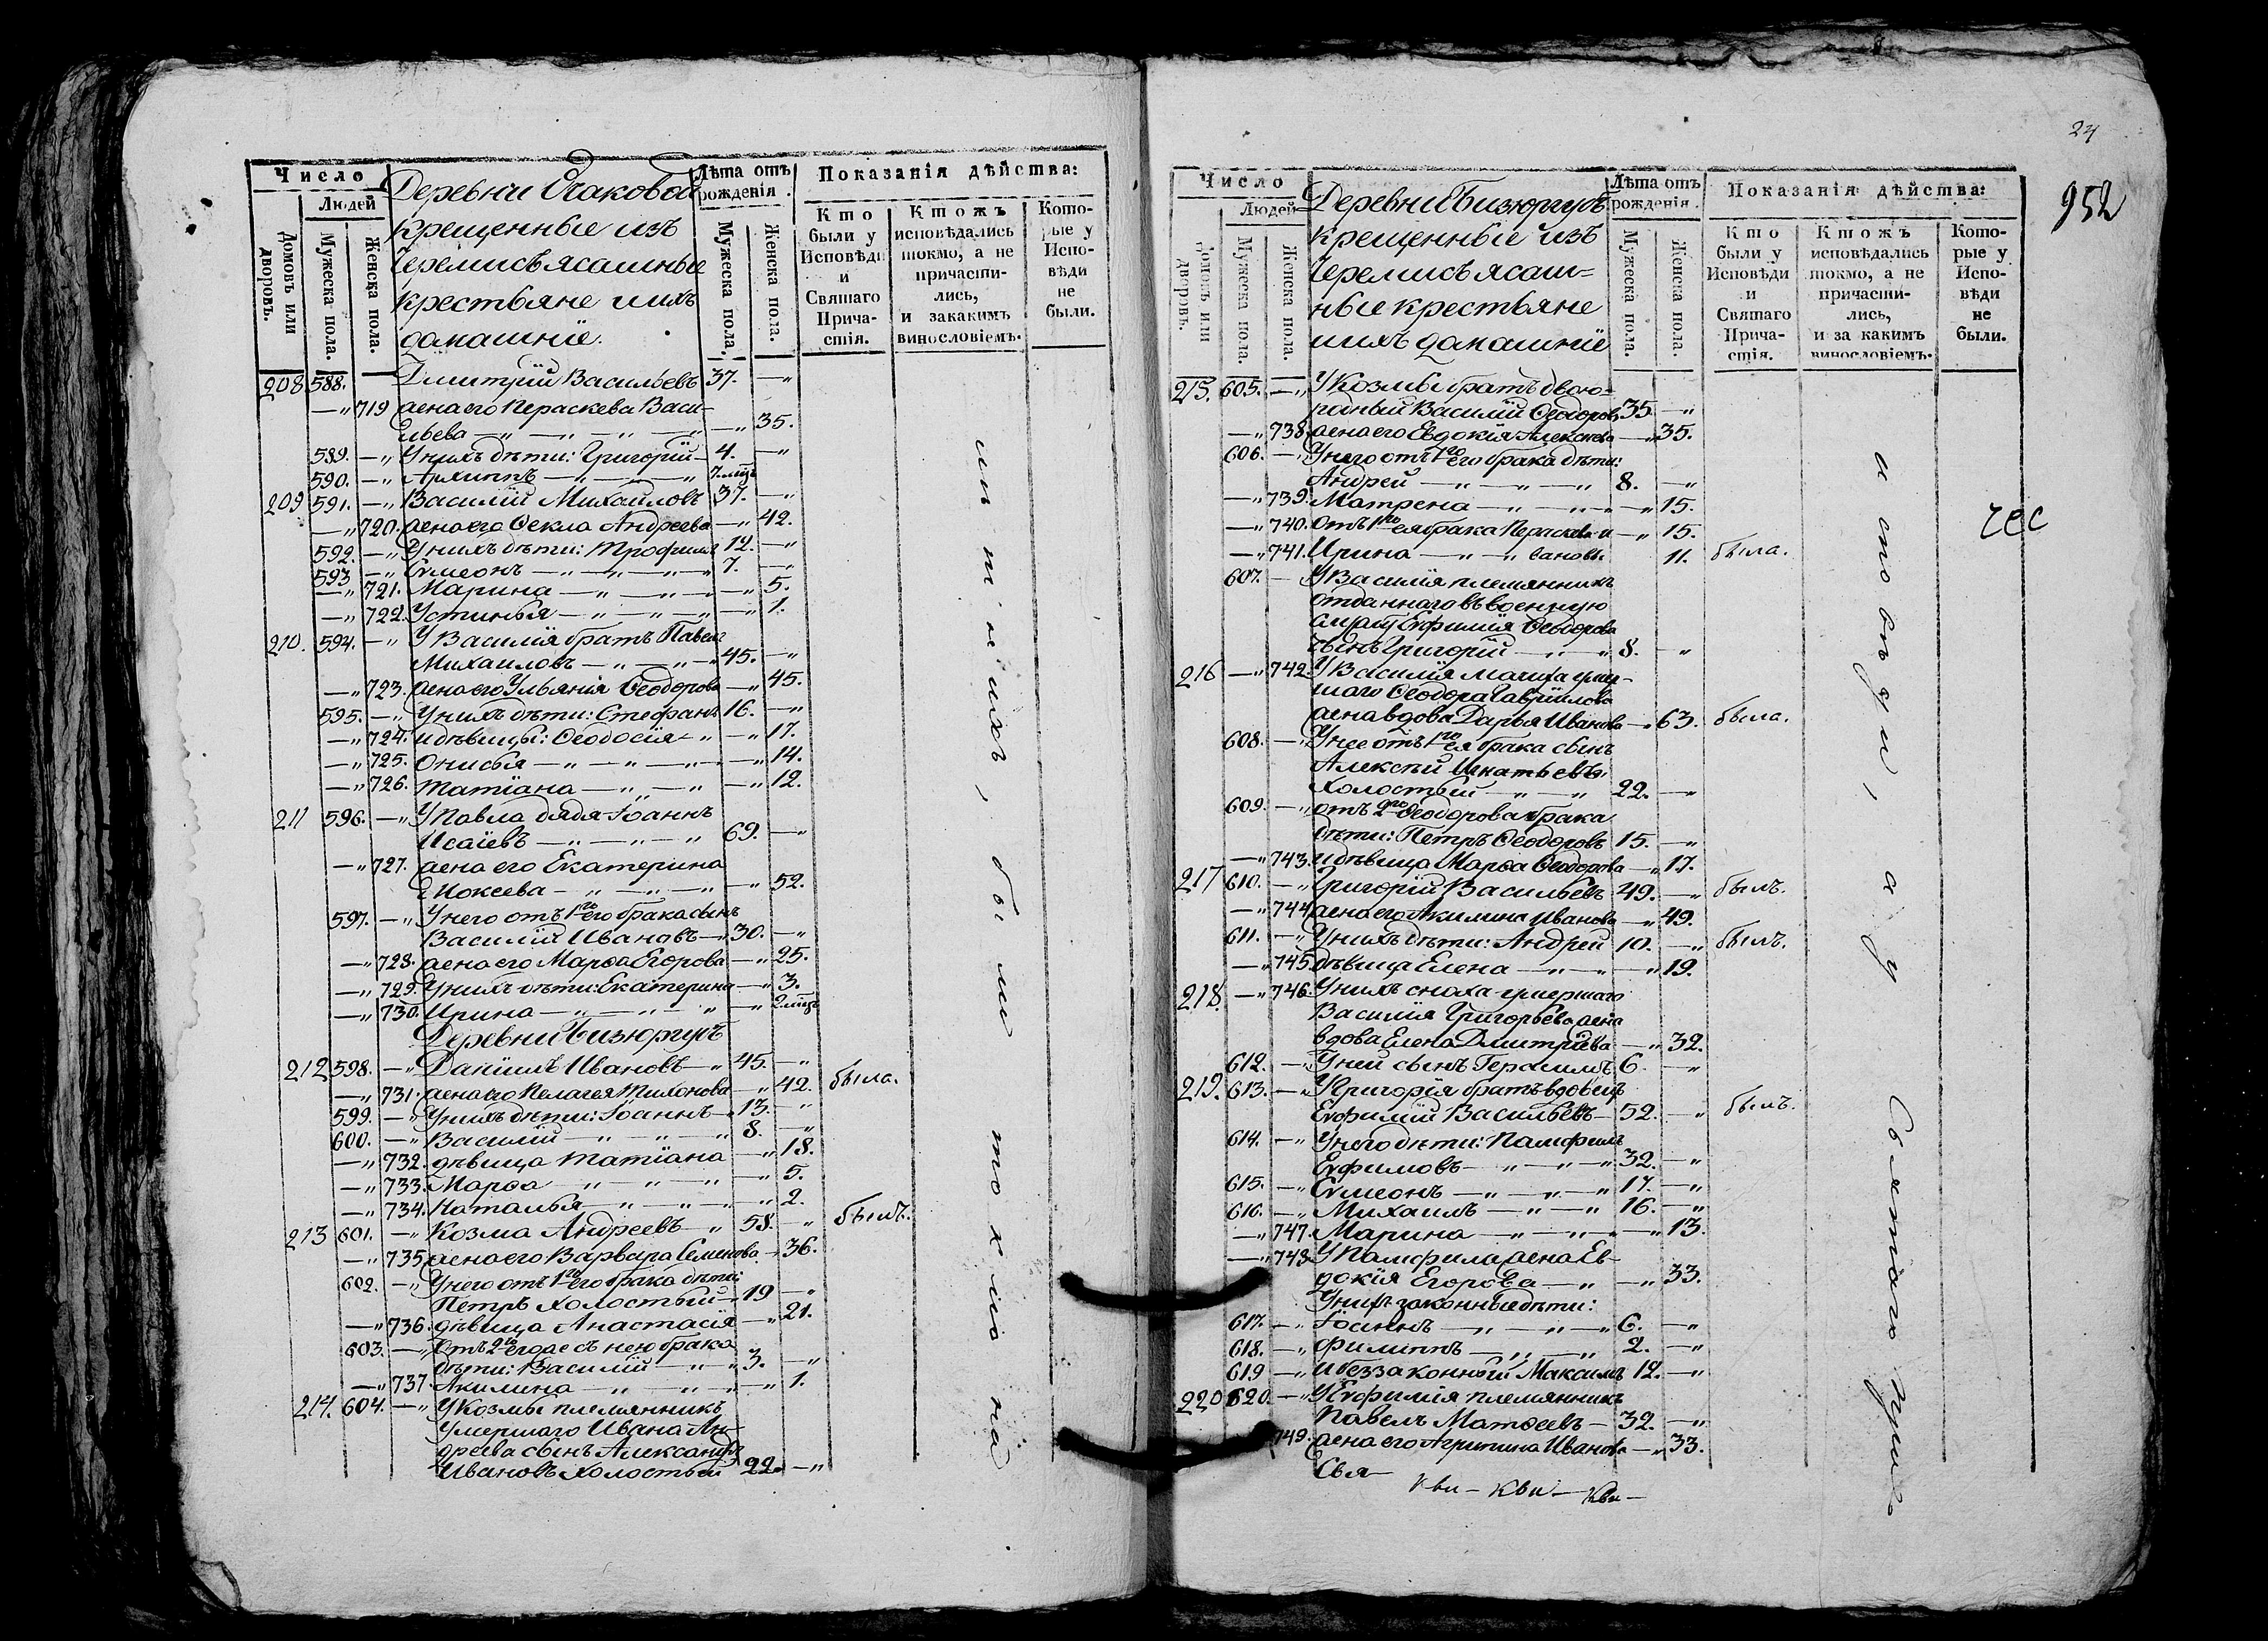 Число
Людей
Домовъ или дворовъ.
Мужеска пола.
Женска пола.
Деревни Очаковой
крещенные изъ
Черемисъ ясашные
крестьяне и ихъ
домашніе.
Лѣта отъ рожденія.
Мужеска пола.
Женска пола.
Показанія дѣйства:
Кто были у Исповѣди и Святаго Прича-стія.
Ктожъ исповѣдались токмо, а не причасти-лись, и закакимъ винословіемъ.
Кото-рые у Испо-вѣди не были.
208 588. — Дмитрій Васильевъ 37. —„
—„ 719 жена его Параскева Васи-
льева —„ —„ —„ —„ —„ 35.
589. —„ У нихъ дѣти: Григорій — 4. —„
590. —„ Архиппъ —„ —„ —„ 7. мцъ
209 591. —„ Василій Михаиловъ 37. —„
—„ 720. жена его Ѳекла Андреева —„ 42.
592. —„ У нихъ дѣти: Трофимъ 12. —„
593 —„ Сѵмеонъ —„ —„ —„ 7. —„
—„ 721. Марина —„ —„ —„ 5.
—„ 722. Устинья —„ —„ —„ 1.
210. 594. —„ У Василія братъ Павелъ
Михаиловъ —„ —„ 45. —„
—„ 723. жена его Ульянія Ѳеодорова —„ 45.
595. —„ У нихъ дѣти: Стефанъ 16. —„
—„ 724. и дѣвицы: Ѳеодосія —„ —„ 17.
—„ 725. Онисья —„ —„ —„ —„ 14.
—„ 726. Татіана —„ —„ —„ 12.
211 596. —„ У Павла дядя Іоаннъ
Исаіевъ —„ —„ —„ 69. —„
—„ 727. жена его Екатерина
Мокеева —„ —„ —„ —„ 52.
597. —„ У него отъ 1го его брака сынъ
Василій Ивановъ —„ 30. —„
—„ 728. жена его Марѳа Егорова —„ 25.
—„ 729. У нихъ дѣти: Екатерина —„ 3.
—„ 730. Ирина —„ —„ —„ —„ 2. мцъ
Деревни Визюргутъ
212 598. —„ Даніилъ Ивановъ —„ 45. —„
—„ 731. жена его Пелагея Тихонова —„ 42. была.
599. —„ У нихъ дѣти: Іоаннъ — 13. —„
600. —„ Василій —„ —„ —„ 8. —„
—„ 732. дѣвица Татіана —„ 18.
—„ 733. Марѳа —„ —„ —„ —„ 5.
—„ 734. Наталья —„ —„ —„ 2.
213 601. —„ Козма Андреевъ —„ 58. —„ былъ.
—„ 735 жена его Варвара Семенова —„ 36.
602. —„ У него отъ 1го его брака дѣти:
Петръ холостый —„ 19 —„
—„ 736. дѣвица Анастасія —„ 21.
603. —„ Отъ 2го его же съ нею брака
дѣти: Василій —„ —„ 3. —„
—„ 737. Акилина —„ —„ —„ 1.
214. 604. —„ У Козмы племянникъ
умершаго Ивана Ан-
дреева сынъ Александръ
Ивановъ холостый 22. —„
ии т нихъ, были токмо на
24
952
Число
Людей
Домовъ или дворовъ.
Мужеска пола.
Женска пола.
Деревни Визюргутъ
крещенные изъ
Черемисъ ясаш-
ные крестьяне
и ихъ домашніе
Лѣта отъ рожденія.
Мужеска пола.
Женска пола.
Показанія дѣйства:
Кто были у Исповѣди и Святаго Прича-стія.
Ктожъ исповѣдались токмо, а не причасти-лись, и за какимъ винословіемъ.
Кото-рые у Испо-вѣди не были.
215. 605. —„ У Козмы братъ двою-
родный Василій Ѳеодоровъ 35 —„
—„ 738. жена его Евдокія Алексѣева —„ 35.
606. —„ У него отъ 1го его брака дѣти:
Андрей —„ —„ —„ 8. —„
—„ 739. Матрена —„ —„ —„ 15.
—„ 740. Отъ 1го ея брака Параскева и —„ 15.
—„ 741. Ирина —„ —„ 11. была.
607. — У Василія племянникъ
отданнаго въ военную
службу Евфимія Ѳеодорова
сынъ Григорій —„ —„ 8. —„
216 —„ 742. У Василія мачиха умер-
шаго Ѳеодора Гавріилова
жена вдова Дарья Иванова —„ 63. была.
608. —„ У нее отъ 1го ея брака сынъ
Алексѣй Игнатьевъ
холостый —„ —„ 22. —„
609. —„ отъ 2го Ѳеодорова брака
дѣти: Петръ Ѳеодоровъ 15. —„
—„ 743. и дѣвица Марѳа Ѳеодорова —„ 17.
217 610. —„ Григорій Васильевъ 49. —„ былъ.
—„ 744 жена его Акилина Иванова —„ 49.
611. —„ У нихъ дѣти: Андрей 10. —„ былъ.
—„ 745 дѣвица Елена —„ —„ —„ 19.
218. —„ 746. У нихъ сноха умершаго
Василія Григорьева жена
вдова Елена Дмитріева —„ 32.
612. —„ У ней сынъ Герасимъ 6. —„
219. 613. —„ У Григорія братъ вдовецъ
Евфимій Васильевъ — 52. —„ былъ.
614. —„ У него дѣти: Памфилъ
Евфимовъ —„ —„ —„ 32. —„
615. —„ Сѵмеонъ —„ —„ —„ 17. —„
616. —„ Михаилъ —„ —„ 16. —„
—„ 747. Марина —„ —„ —„ 13.
—„ 748. У Памфила жена Ев-
докія Егорова —„ —„ 33.
У нихъ законные дѣти:
617. —„ Іоаннъ —„ —„ —„ 6. —„
618. —„ Филиппъ —„ —„ 2. —„
619 —„ и беззаконный Максимъ 12. —„
220 620. —„ У Евфимія племянникъ
Павелъ Матѳеевъ — 32. —„
749. жена его Агрипина Иванова —„ 33.
Свя —
Кви — Кви — Кви —
исповѣди, а у Святаго при-